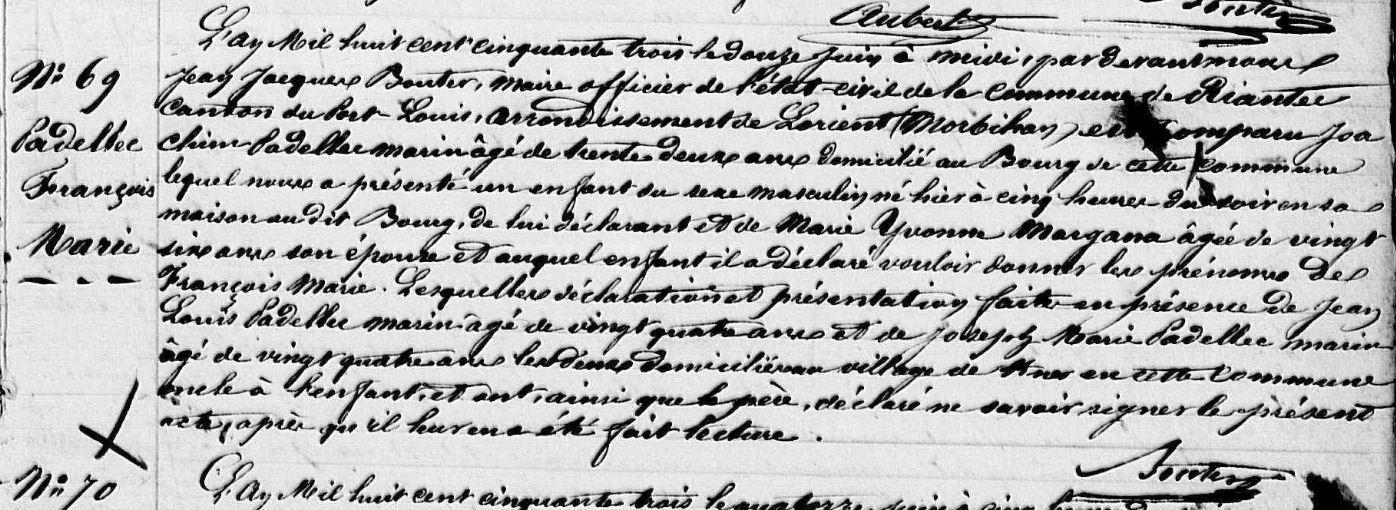 Aubert
Nº 69
Padellec
François
Marie
L'an Mil huit cent cinquante trois le douze juin à midi, par devant nous
Jean Jacques Bonter, maire officier de l'état-civil de la commune de Riantec
Canton du Port-Louis, arrondissement de Lorient (Morbihan) est comparu Joa
chim Padellec marin âgé de trente deux ans domicilié au Bourg de cette commune
lequel nous a présenté un enfant du sexe masculin né hier à cinq heures du soir en sa
maison au dit Bourg, de lui déclarant et de Marie Yvonne Margana âgée de vingt
six ans son épouse et auquel enfant il a déclaré vouloir donner les prénoms de
François Marie. Lesquelles déclaration et présentation faite en présence de Jean
Louis Padellec marin âgé de vingt quatre ans et de Joseph Marie Padellec marin
âgé de vingt quatre ans les deux domiciliés au village de en cette commune
oncle à l'enfant, et ont, ainsi que le père, déclaré ne savoir signer le présent
acte, après qu'il leur en a été fait lecture.
Bonter
Nº 70
L'an Mil huit cent cinquante trois le quatorze juin à cinq heures